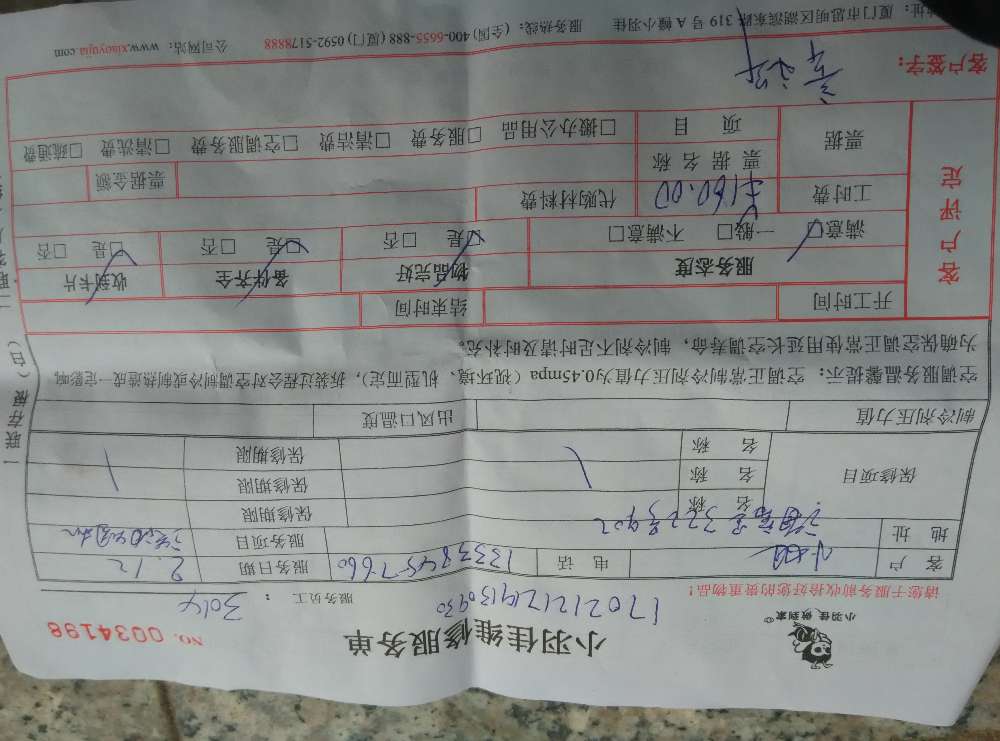 小羽佳 做到家
小羽佳维修服务单
NO. 0034198
1702121214130930
服务员工： 3014
请您于服务前收拾好您的贵重物品！
客 户 小姐 电 话 13338457660 服务日期 2.12
地 址 322号402 服务项目 清洗
保修项目 名 称 保修期限
名 称 保修期限
名 称 保修期限
制冷剂压力值 出风口温度
空调服务温馨提示：空调正常制冷剂压力值为0.45mpa（视环境、机型而定），拆装过程会对空调制冷或制热造成一定影响，
为确保空调正常使用延长空调寿命，制冷剂不足时请及时补充。
一联存根（白）
客户评定
开工时间 结束时间
服务态度 物品完好 备件齐全 收到卡片
满意□ 一般□ 不满意□ 是□ 否□ 是□ 否□ 是□ 否□
工时费 ¥160.00 代购材料费
票据 票据名称 票据金额
项 目 □搬办公用品 □服务费 □清洁费 □空调服务费 □清洗费 □疏通费
客户签字：
地址：厦门市思明区湖滨东路 319 号 A 幢小羽佳 服务热线：（全国）400-6655-888（厦门）0592-5178888 公司网站：www.xiaoyujia.com